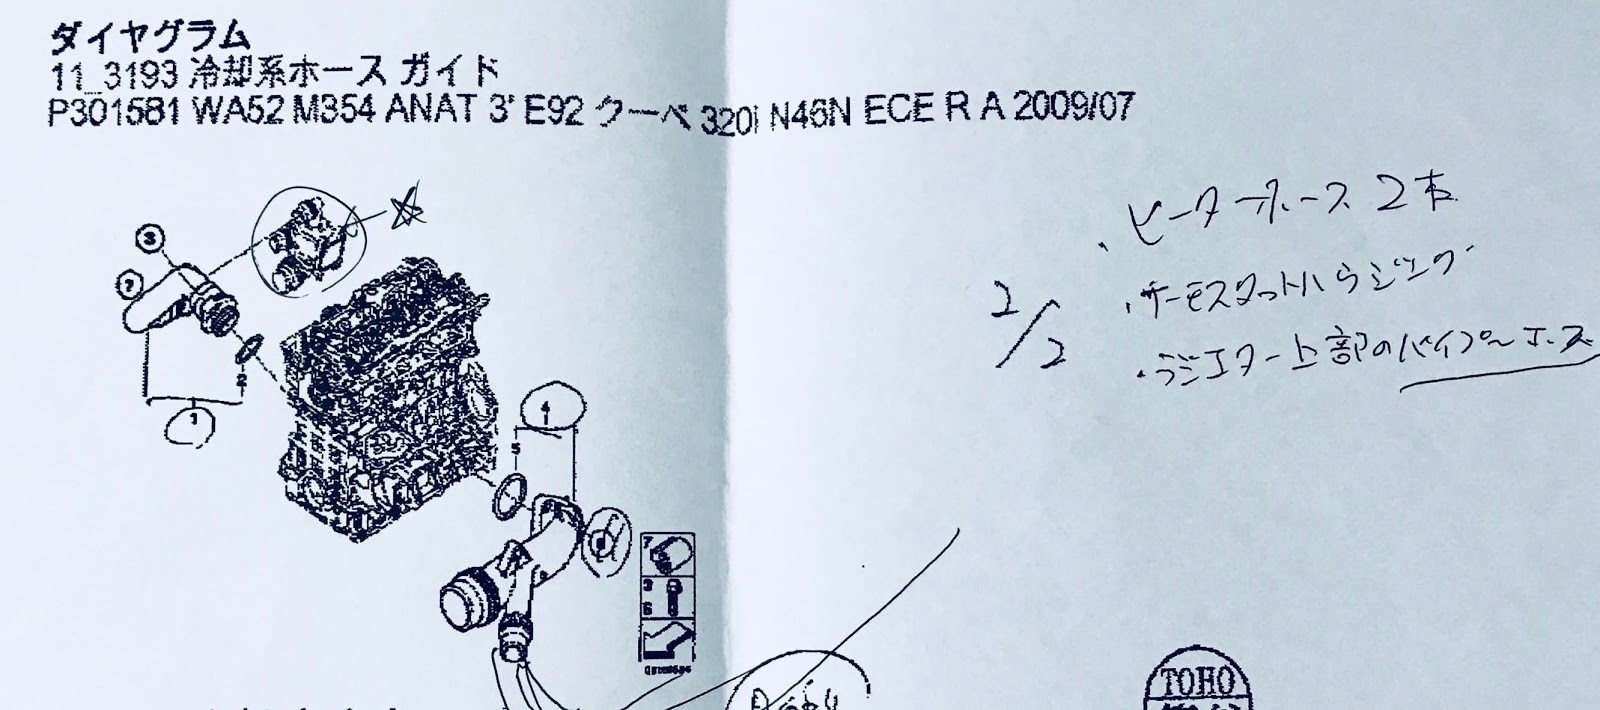 ダイヤグラム
11_3193 冷却系ホース ガイド
P301581 WA52 M354 ANAT 3' E92 クーペ 320i N46N ECE R A 2009/07
・ヒーターホース 2本
2/2
・サーモスタットハウジング
・ラジエター上部のパイプホース
3
7
2
1
4
5
7
3
6
TOHO